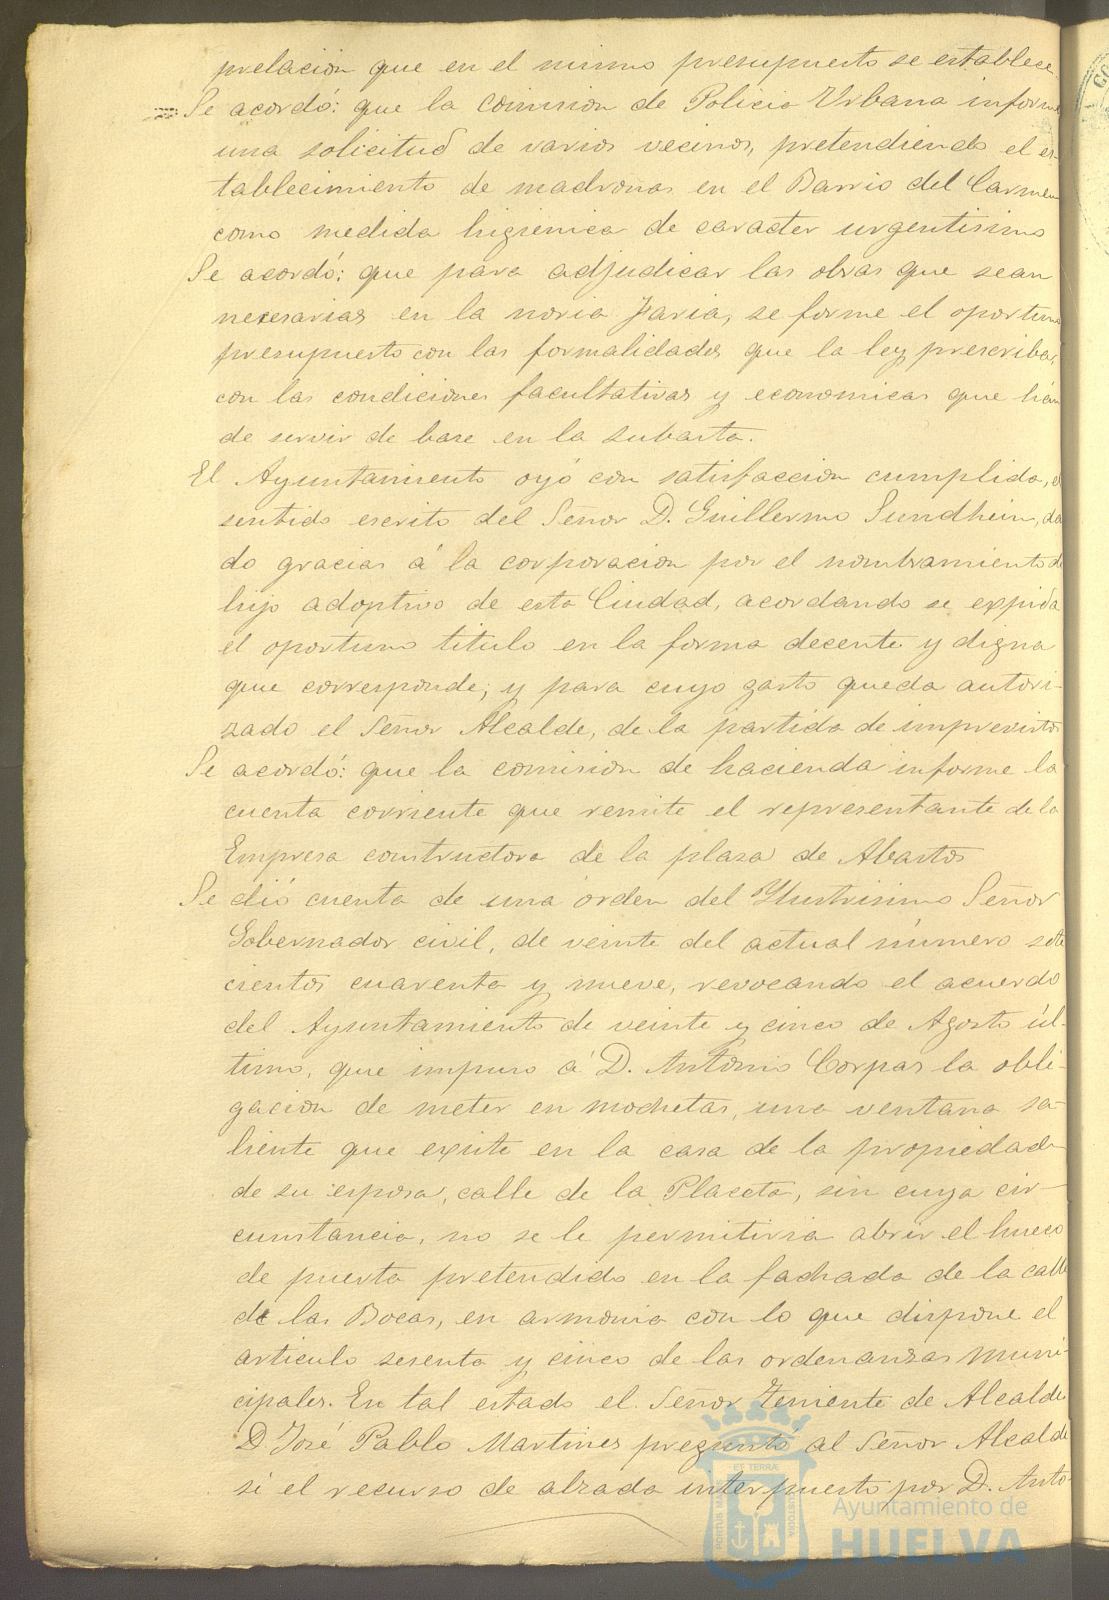 prelación que en el mismo presupuesto se establece.
Se acordó: que la Comision de Policia Urbana informe
una solicitud de varios vecinos, pretendiendo el es-
tablecimiento de madronas en el Barrio del Carmen
como medida higienica de caracter urgentisimo
Se acordó: que para adjudicar las obras que sean
necesarias en la noria Jaria, se forme el oportuno
presupuesto con las formalidades que la ley prescriba,
con las condiciones facultativas y economicas que hán
de servir de base en la subasta.
El Ayuntamiento oyó con satisfaccion cumplida, el
sentido escrito del Señor D. Guillermo Sundhein, dan
do gracias á la corporacion por el nombramiento de
hijo adoptivo de esta Ciudad, acordando se expida
el oportuno titulo en la forma decente y digna
que corresponde; y para cuyo gasto queda autori-
zado el Señor Alcalde, de la partida de imprevistos
Se acordó: que la comision de hacienda informe la
cuenta corriente que remite el representante de la
Empresa constructora de la plasa de Abastos
Se dió cuenta de una órden del Ylustrisimo Señor
Gobernador civil, de veinte del actual número sete
cientos cuarenta y nueve, revocando el acuerdo
del Ayuntamiento de veinte y cinco de Agosto úl-
timo, que impuso á D. Antonio Corpas la obli-
gacion de meter en mochetas, una ventana sa-
liente que existe en la casa de la propiedad
de su esposa, calle de la Placeta, sin cuya cir-
cunstancia, no se le permitiria abrir el hueco
de puerta pretendido en la fachada de la calle
de las Bocas, en armonia con lo que dispone el
articulo sesenta y cinco de las ordenanzas muni-
cipales. En tal estado el Señor Teniente de Alcalde
D José Pablo Martines pregunto al Señor Alcalde
si el recurso de alzada interpuesto por D. Anto
ET TERRÆ
PORTUS MARIS
CUSTODIA
Ayuntamiento de
HUELVA